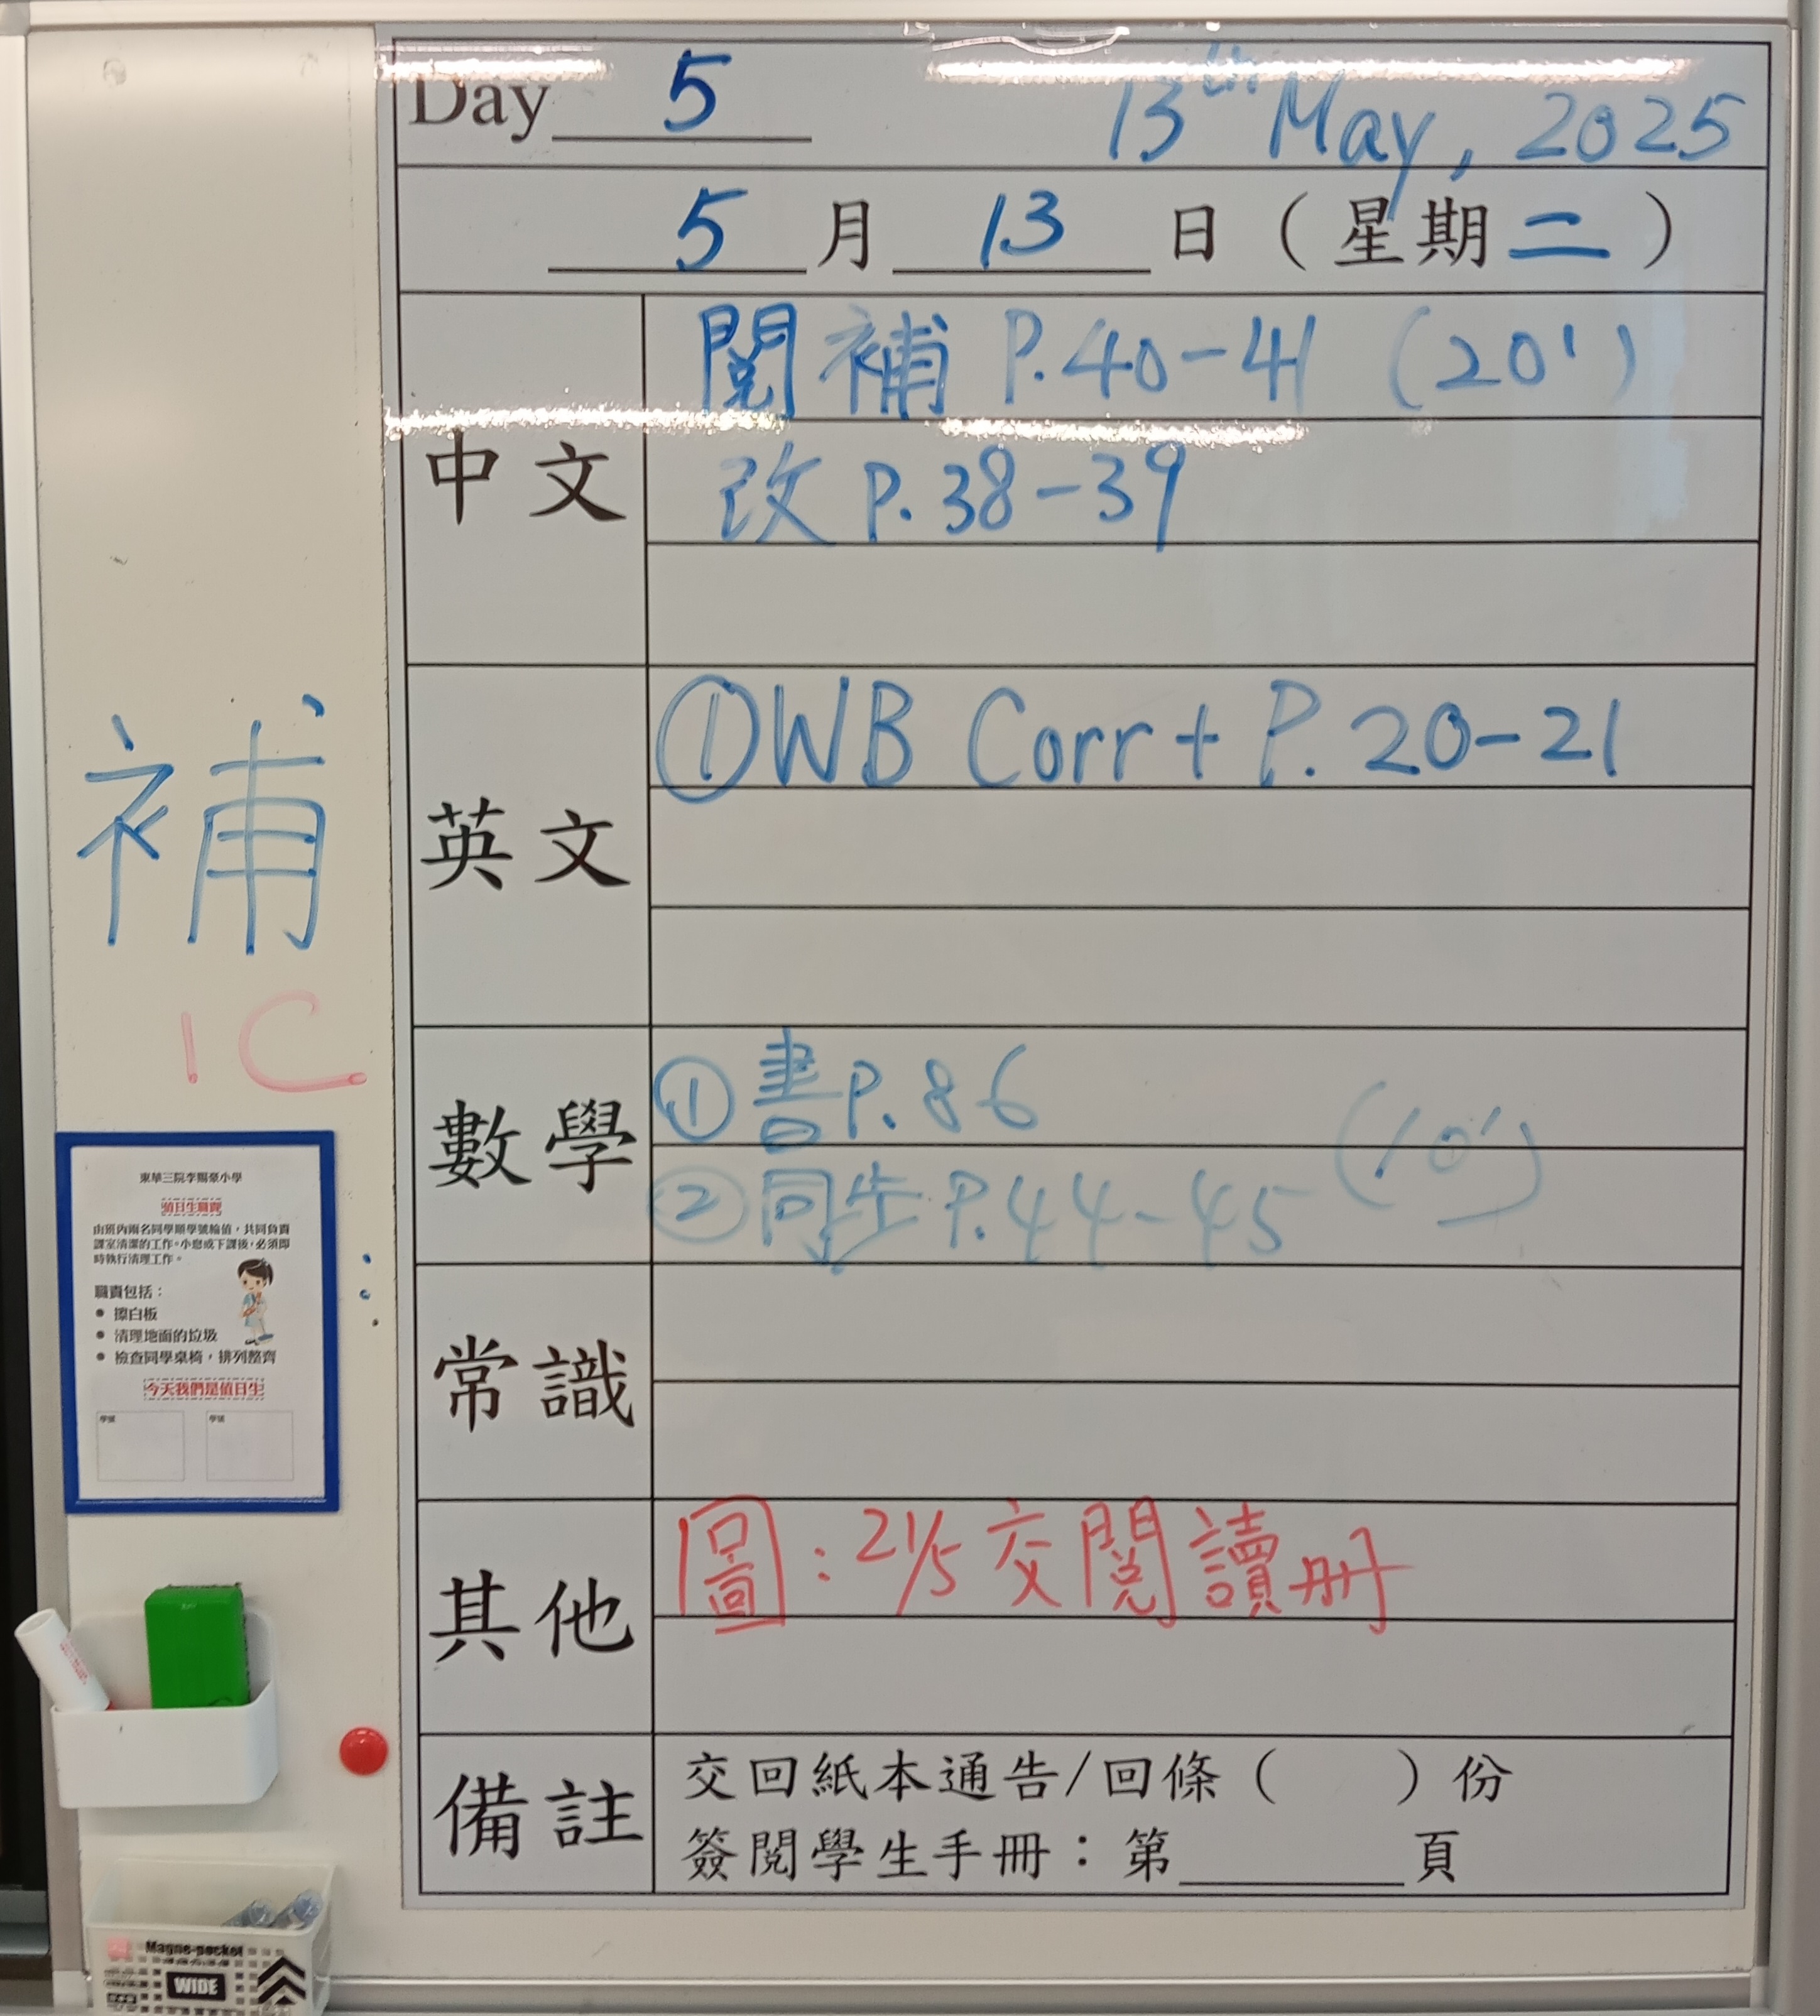 Day 5 13th May, 2025
5 月 13 日 ( 星期 二 )
中文
閱補 P.40-41 (20')
改 P.38-39
英文
① WB Corr + P. 20-21
數學
① 書 P.86
② 同步 P.44-45 (10')
常識
其他
圖：21/5 交閱讀册
備註
交回紙本通告/回條 ( ) 份
簽閱學生手冊：第______頁
補
1C
東華三院李賜豪小學
值日生職責
由班內兩名同學順學號輪值，共同負責
課室清潔的工作。小息或下課後，必須即
時執行清理工作。
職責包括：
● 擦白板
● 清理地面的垃圾
● 檢查同學桌椅，排列整齊
今天我們是值日生
學號 學號
Magne-pocket
WIDE